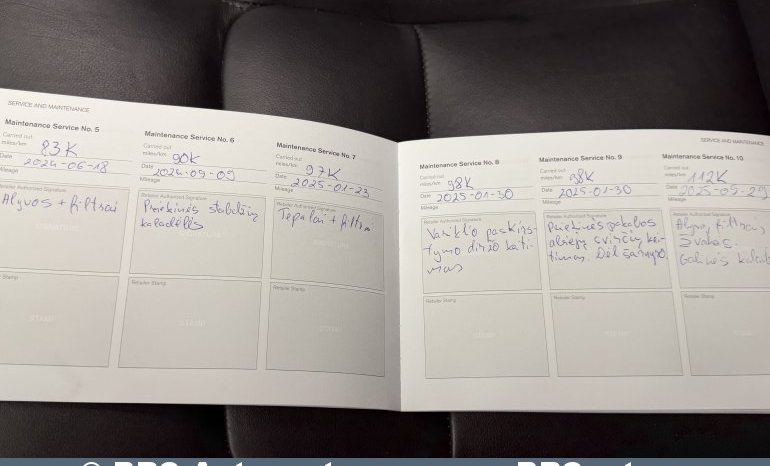 SERVICE AND MAINTENANCE
Maintenance Service No. 5
Carried out
miles/km 83K
Date 2024-06-18
Mileage
Retailer Authorised Signature
Alyvos + filtrai
Stamp
Maintenance Service No. 6
Carried out
miles/km 90K
Date 2024-09-09
Mileage
Retailer Authorised Signature
Priekinės stabdžių
kaladėlės
Retailer Stamp
Maintenance Service No. 7
Carried out
miles/km 97K
Date 2025-01-23
Mileage
Retailer Authorised Signature
Tepalai + filtrai
Retailer Stamp
SERVICE AND MAINTENANCE
Maintenance Service No. 8
Carried out
miles/km 98K
Date 2025-01-30
Mileage
Retailer Authorised Signature
Variklio paskirs-
tymo diržo keiti-
mas
Retailer Stamp
Maintenance Service No. 9
Carried out
miles/km 98K
Date 2025-01-30
Mileage
Retailer Authorised Signature
Priekinės pakabos
abiejų svirčių kei-
timas. Dėl
Retailer Stamp
Maintenance Service No. 10
Carried out
miles/km 112K
Date 2025-05-29
Mileage
Retailer Authorised Signature
Alyva, filtrai,
žvakės.
Retailer Stamp